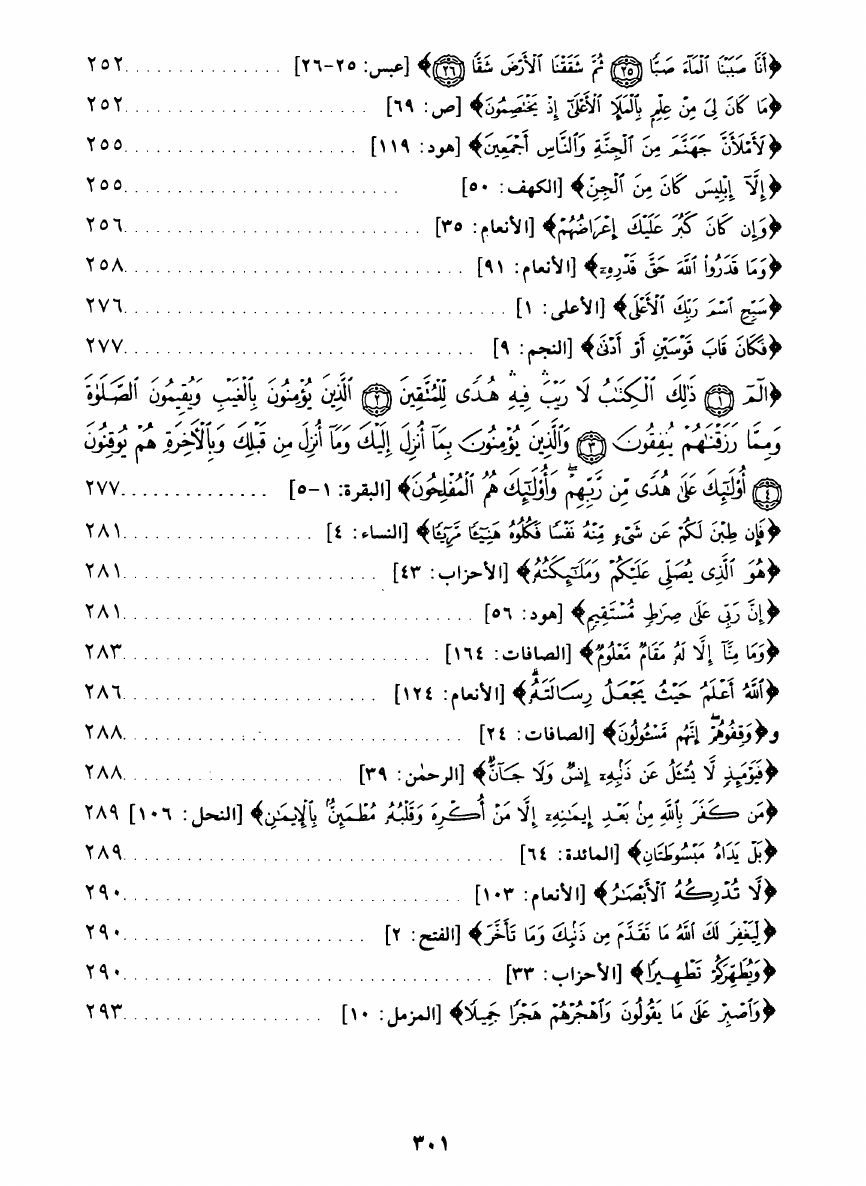 ﴿أَنَّا صَبَبْنَا ٱلْمَآءَ صَبًّا ۝٢٥ ثُمَّ شَقَقْنَا ٱلْأَرْضَ شَقًّا ۝٢٦﴾ [عبس: ٢٥-٢٦] ............... ٢٥٢
﴿مَا كَانَ لِىَ مِنْ عِلْمٍۭ بِٱلْمَلَإِ ٱلْأَعْلَىٰٓ إِذْ يَخْتَصِمُونَ﴾ [ص: ٦٩] ........................ ٢٥٢
﴿لَأَمْلَأَنَّ جَهَنَّمَ مِنَ ٱلْجِنَّةِ وَٱلنَّاسِ أَجْمَعِينَ﴾ [هود: ١١٩] ....................... ٢٥٥
﴿إِلَّآ إِبْلِيسَ كَانَ مِنَ ٱلْجِنِّ﴾ [الكهف: ٥٠] ........................... ٢٥٥
﴿وَإِن كَانَ كَبُرَ عَلَيْكَ إِعْرَاضُهُمْ﴾ [الأنعام: ٣٥] ............................. ٢٥٦
﴿وَمَا قَدَرُوا۟ ٱللَّهَ حَقَّ قَدْرِهِۦٓ﴾ [الأنعام: ٩١] ................................. ٢٥٨
﴿سَبِّحِ ٱسْمَ رَبِّكَ ٱلْأَعْلَى﴾ [الأعلى: ١] ..................................... ٢٧٦
﴿فَكَانَ قَابَ قَوْسَيْنِ أَوْ أَدْنَىٰ﴾ [النجم: ٩] .................................. ٢٧٧
﴿الٓمٓ ۝١ ذَٰلِكَ ٱلْكِتَـٰبُ لَا رَيْبَ ۛ فِيهِ ۛ هُدًى لِّلْمُتَّقِينَ ۝٢ ٱلَّذِينَ يُؤْمِنُونَ بِٱلْغَيْبِ وَيُقِيمُونَ ٱلصَّلَوٰةَ
وَمِمَّا رَزَقْنَـٰهُمْ يُنفِقُونَ ۝٣ وَٱلَّذِينَ يُؤْمِنُونَ بِمَآ أُنزِلَ إِلَيْكَ وَمَآ أُنزِلَ مِن قَبْلِكَ وَبِٱلْـَٔاخِرَةِ هُمْ يُوقِنُونَ
۝٤ أُو۟لَـٰٓئِكَ عَلَىٰ هُدًى مِّن رَّبِّهِمْ ۖ وَأُو۟لَـٰٓئِكَ هُمُ ٱلْمُفْلِحُونَ﴾ [البقرة: ١-٥] .............. ٢٧٧
﴿فَإِن طِبْنَ لَكُمْ عَن شَىْءٍ مِّنْهُ نَفْسًا فَكُلُوهُ هَنِيٓـًٔا مَّرِيٓـًٔا﴾ [النساء: ٤] ................... ٢٨١
﴿هُوَ ٱلَّذِى يُصَلِّى عَلَيْكُمْ وَمَلَـٰٓئِكَتُهُۥ﴾ [الأحزاب: ٤٣] ......................... ٢٨١
﴿إِنَّ رَبِّى عَلَىٰ صِرَٰطٍ مُّسْتَقِيمٍ﴾ [هود: ٥٦] .................................. ٢٨١
﴿وَمَا مِنَّآ إِلَّا لَهُۥ مَقَامٌ مَّعْلُومٌ﴾ [الصافات: ١٦٤] .............................. ٢٨٣
﴿ٱللَّهُ أَعْلَمُ حَيْثُ يَجْعَلُ رِسَالَتَهُۥ﴾ [الأنعام: ١٢٤] .......................... ٢٨٦
و﴿وَقِفُوهُمْ ۖ إِنَّهُم مَّسْـُٔولُونَ﴾ [الصافات: ٢٤] ................................ ٢٨٨
﴿فَيَوْمَئِذٍ لَّا يُسْـَٔلُ عَن ذَنۢبِهِۦٓ إِنسٌ وَلَا جَآنٌّ﴾ [الرحمٰن: ٣٩] ....................... ٢٨٨
﴿مَن كَفَرَ بِٱللَّهِ مِنۢ بَعْدِ إِيمَـٰنِهِۦٓ إِلَّا مَنْ أُكْرِهَ وَقَلْبُهُۥ مُطْمَئِنٌّۢ بِٱلْإِيمَـٰنِ﴾ [النحل: ١٠٦] ٢٨٩
﴿بَلْ يَدَاهُ مَبْسُوطَتَانِ﴾ [المائدة: ٦٤] ..................................... ٢٨٩
﴿لَّا تُدْرِكُهُ ٱلْأَبْصَـٰرُ﴾ [الأنعام: ١٠٣] ................................. ٢٩٠
﴿لِّيَغْفِرَ لَكَ ٱللَّهُ مَا تَقَدَّمَ مِن ذَنۢبِكَ وَمَا تَأَخَّرَ﴾ [الفتح: ٢] ........................ ٢٩٠
﴿وَيُطَهِّرَكُمْ تَطْهِيرًا﴾ [الأحزاب: ٣٣] .................................... ٢٩٠
﴿وَٱصْبِرْ عَلَىٰ مَا يَقُولُونَ وَٱهْجُرْهُمْ هَجْرًا جَمِيلًا﴾ [المزمل: ١٠] ................... ٢٩٣
٣٠١